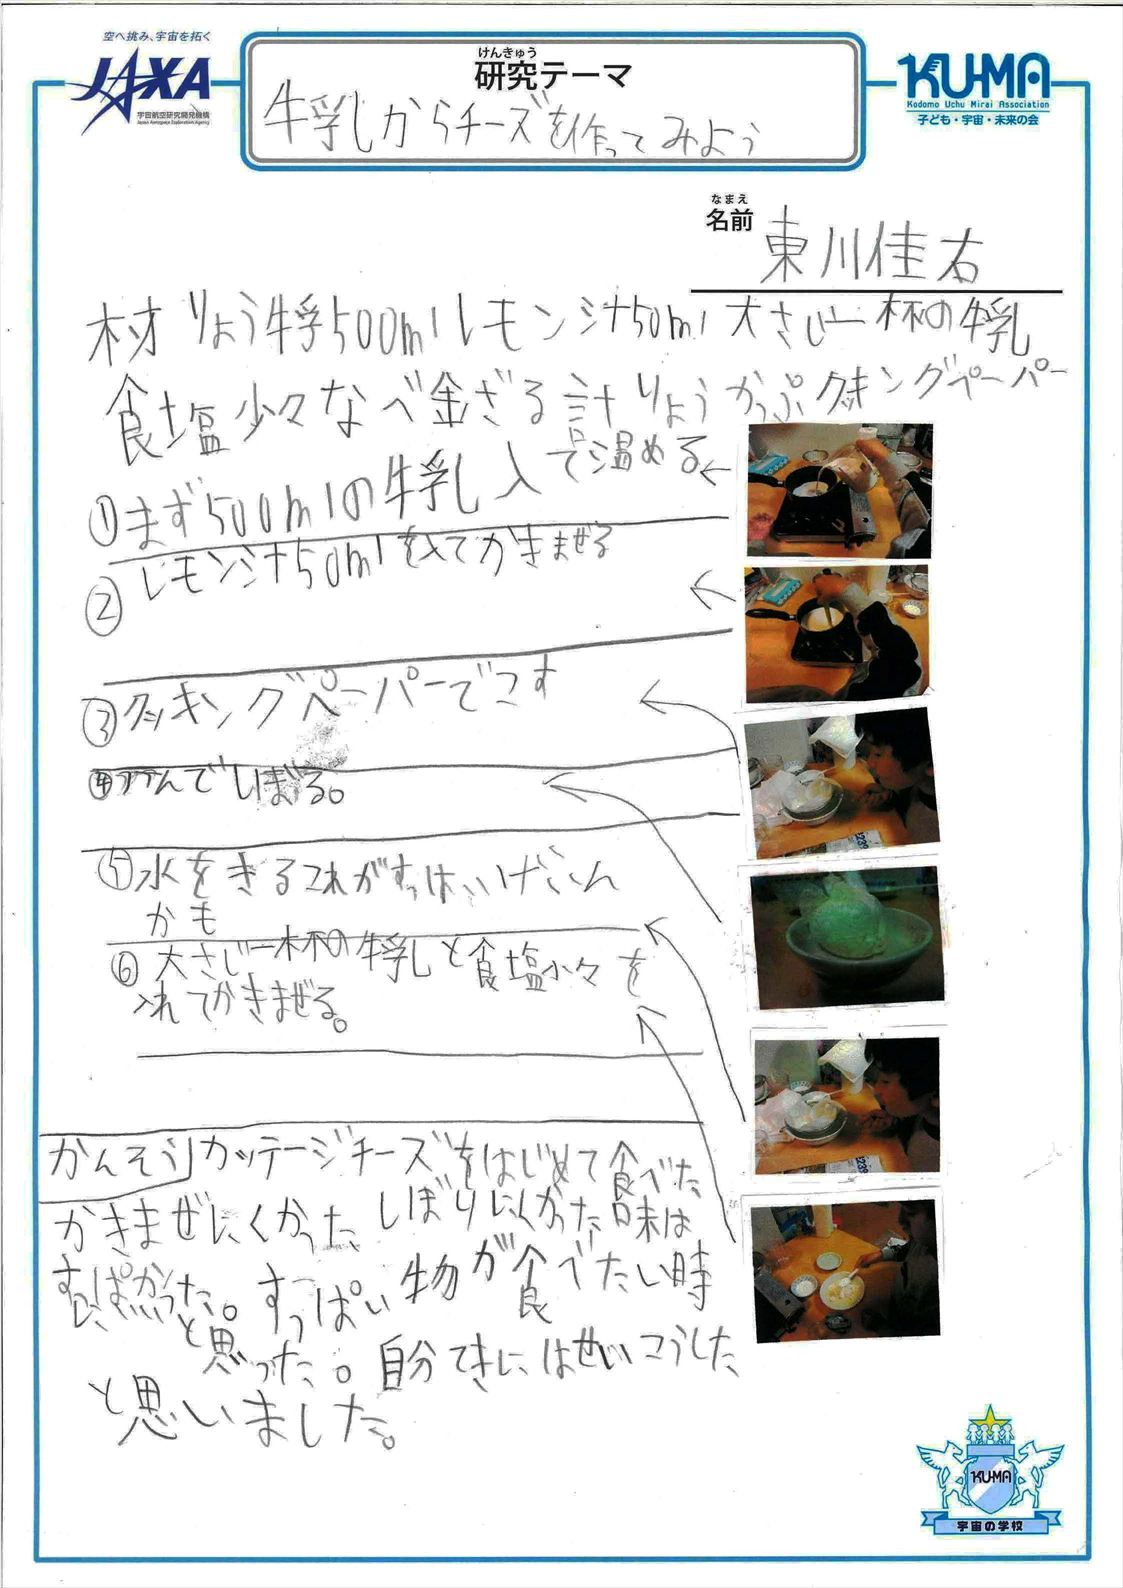 空へ挑み、宇宙を拓く
JAXA
宇宙航空研究開発機構
Japan Aerospace Exploration Agency
けんきゅう
研究テーマ
牛乳からチーズを作ってみよう
KU-MA
Kodomo Uchu Mirai Association
子ども・宇宙・未来の会
なまえ
名前 東川佳右
材りょう牛乳500mlレモン汁50ml大さじ一杯の牛乳
食塩少々なべ金ざる計りょうかっぷクッキングペーパー
①まず500mlの牛乳入て温める
②レモン汁50mlを入てかきまぜる
③クッキングペーパーでこす
んでしぼる。
⑤水をきるこれがすっぱいげんいん
かも
⑥大さじ一杯の牛乳と食塩少々を
入れてかきまぜる。
かんそう カッテージチーズをはじめて食べた
かきまぜにくかったしぼりにくかった味は
すっぱかった。すっぱい物が食べたい時
と思った。自分てきにはせいこうした
と思いました。
KU-MA
宇宙の学校